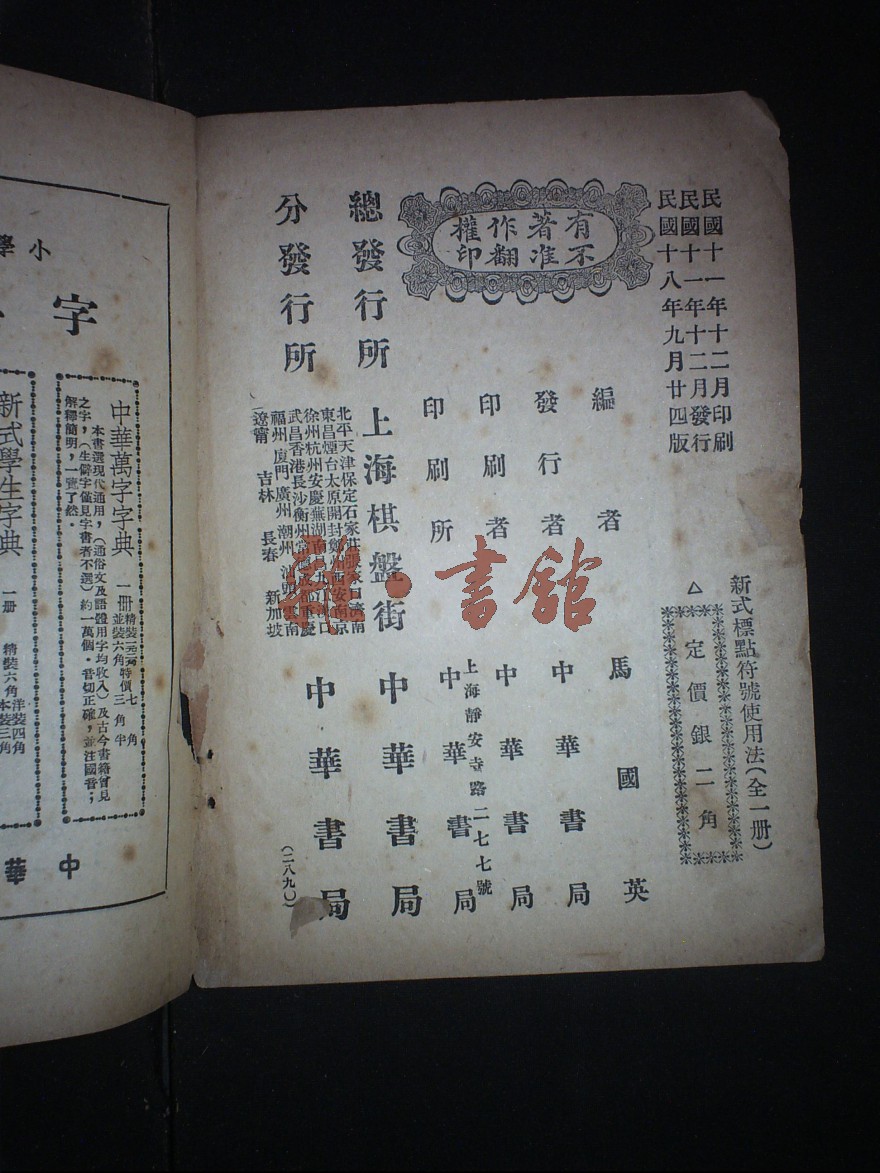 民國十一年十二月印刷
民國十一年十二月發行
民國十八年九月廿四版
新式標點符號使用法(全一册)
△定價銀二角
有著作權
不准翻印
編者 馬國英
發行者 中華書局
印刷者 中華書局
上海靜安寺路二七七號
印刷所 中華書局
總發行所 上海棋盤街 中華書局
分發行所 中華書局
北平天津保定石家莊張家口濟南
東昌煙台太原開封鄭州西安南京
徐州杭州安慶蕪湖南昌九江漢口
武昌香港長沙衡州常德 重慶
福州廈門廣州潮州汕頭雲南
遼寧 吉林 長春 新加坡
(二八九〇)
書館
小學
字
中華萬字字典
一册 精裝 特價七角
並裝六角 三角半
本書選現代通用,(通俗文及語體用字均收入)及古今書籍曾見
之字,(生僻字僅見字書者不選)約一萬個.音切正確,並注國音;
解釋簡明,一覽了然.
新式學生字典
一册
精裝六角 洋裝四角
本裝三角
中華